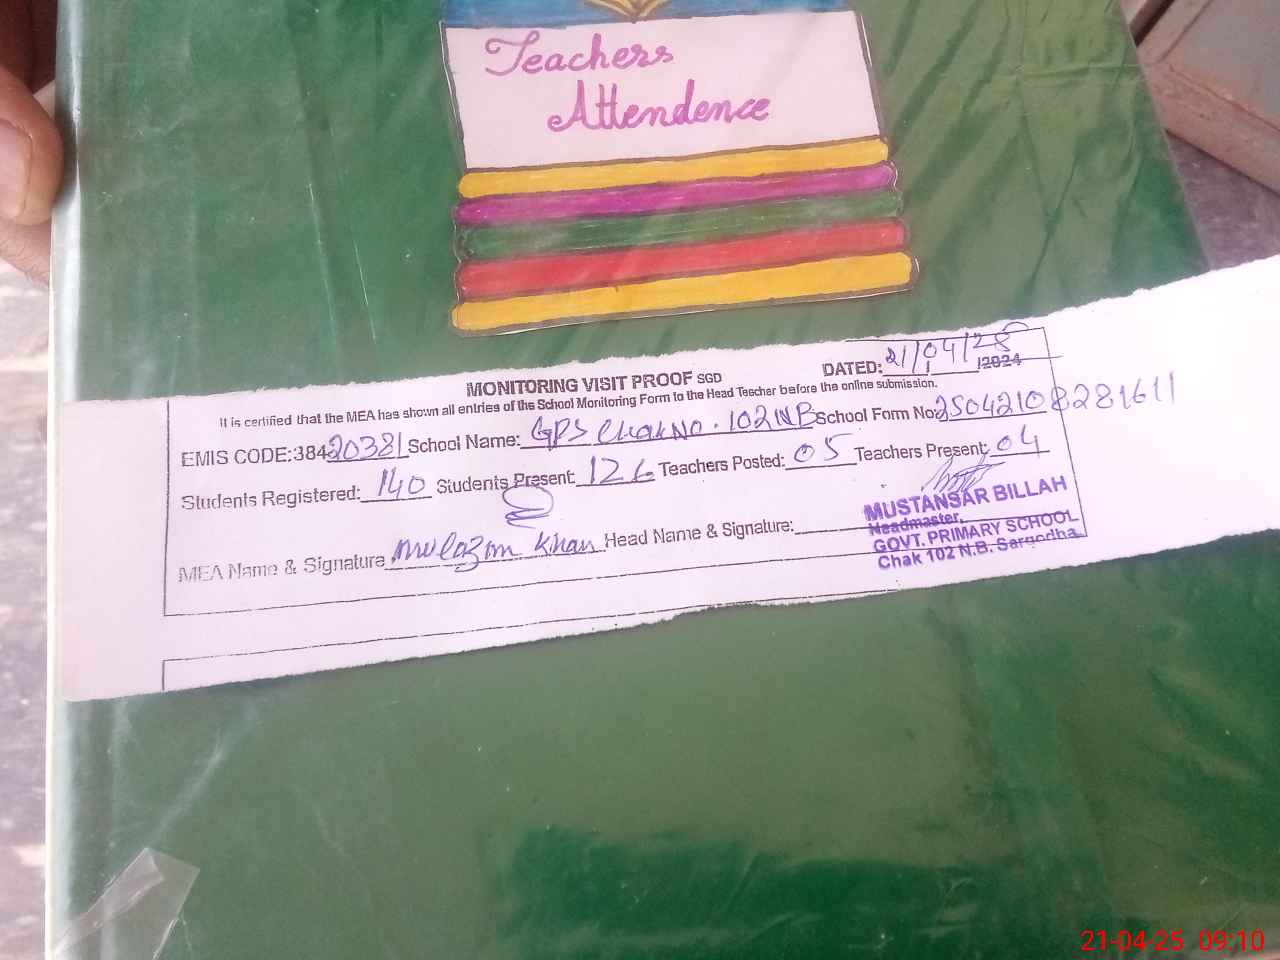 Teachers
Attendence
MONITORING VISIT PROOF SGD
DATED: 21/04/25 /2024
It is certified that the MEA has shown all entries of the School Monitoring Form to the Head Teacher before the online submission.
EMIS CODE:38420381 School Name: GPS Chak No. 102NB School Form No: 25042108281611
Students Registered: 140 Students Present: 126 Teachers Posted: 05 Teachers Present: 04
MEA Name & Signature Mulazim Khan Head Name & Signature:
MUSTANSAR BILLAH
Headmaster,
GOVT. PRIMARY SCHOOL
Chak 102 N.B. Sargodha.
21-04-25 09:10